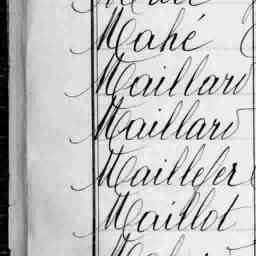 Mahé
Maillard
Maillard
Maillefer
Maillot